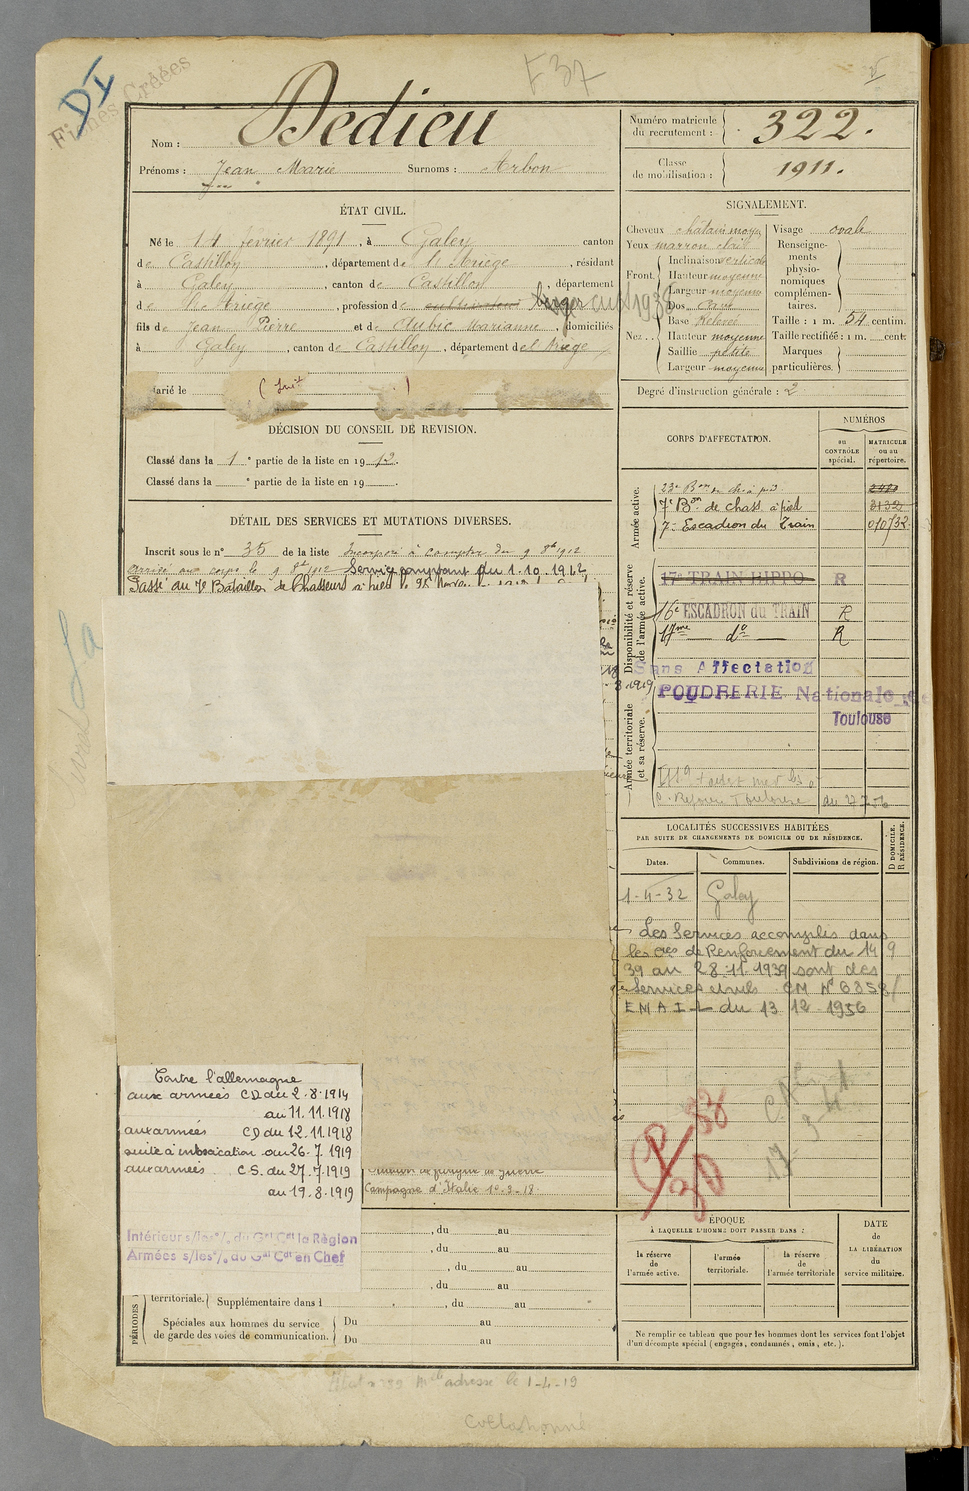 DI
Fiches Créées
F 37
Nom : Dedieu
Prénoms : Jean Marie Surnoms : Arbon
Numéro matricule du recrutement : 322.
Classe de mobilisation : 1911.
ÉTAT CIVIL.
Né le 14 février 1891, à Galey canton
de Castillon, département de l'Ariège, résidant
à Galey, canton de Castillon, département
de l'Ariège, profession de cultivateur berger
fils de Jean Pierre et de Aubic Marianne, domiciliés
à Galey, canton de Castillon, département de l'Ariège
arié le
DÉCISION DU CONSEIL DE REVISION.
Classé dans la 1e partie de la liste en 1912.
Classé dans la e partie de la liste en 19
DÉTAIL DES SERVICES ET MUTATIONS DIVERSES.
Inscrit sous le n° 35 de la liste Incorporé à compter du 9 8bre 1912
arrivé au corps le 9 8bre 1912 Service comptant du 1.10.1912
Passé au 7e Bataillon de Chasseurs à pied le
SIGNALEMENT.
Cheveux châtain moyen
Yeux marron clair
Front. Inclinaison verticale
Hauteur moyenne
Largeur moyenne
Nez.. Dos Cave
Base Relevée
Hauteur moyenne
Saillie petite
Largeur moyenne
Visage ovale
Renseignements physionomiques complémentaires.
Taille : 1 m. 54 centim.
Taille rectifiée : 1 m. cent.
Marques particulières.
Degré d'instruction générale : 2
CORPS D'AFFECTATION.
NUMÉROS
au CONTRÔLE spécial.
MATRICULE ou au répertoire.
Armée active.
23e Bon de ch. à pied
7e Bon de chass. à pied 3132
7e Escadron du Train 010732
Disponibilité et réserve de l'armée active.
17e TRAIN HIPPO R
16e ESCADRON du TRAIN R
17me do R
Sans Affectation
POUDRERIE Nationale de
Toulouse
Armée territoriale et sa réserve.
LOCALITÉS SUCCESSIVES HABITÉES
PAR SUITE DE CHANGEMENTS DE DOMICILE OU DE RÉSIDENCE.
Dates. Communes. Subdivisions de région.
D DOMICILE.
R RÉSIDENCE.
1-4-32 Galey
Les Services accomplis dans
les cies de Renforcement du 14 9
39 au 28.11.1939 sont des
Services civils CM N° 6358/
EMA I-L du 13 12 1956
Contre l'allemagne
aux armées CD du 2.8.1914
au 11.11.1918
aux armées CD du 12.11.1918
suite à intoxication au 26.7.1919
aux armées C.S. du 27.7.1919
au 19.8.1919
Campagne d'Italie
Intérieur s/les o/. du Gal Cdt la Région
Armées s/les o/. du Gal Cdt en Chef
, du au
, du au
, du au
, du au
PÉRIODES
territoriale. Supplémentaire dans l , du au
Spéciales aux hommes du service
de garde des voies de communication.
Du au
Du au
ÉPOQUE
À LAQUELLE L'HOMME DOIT PASSER DANS :
la réserve de l'armée active.
l'armée territoriale.
la réserve de l'armée territoriale
DATE de LA LIBÉRATION du service militaire.
Ne remplir ce tableau que pour les hommes dont les services font l'objet
d'un décompte spécial (engagés, condamnés, omis, etc.).
adresse le 1-4-19